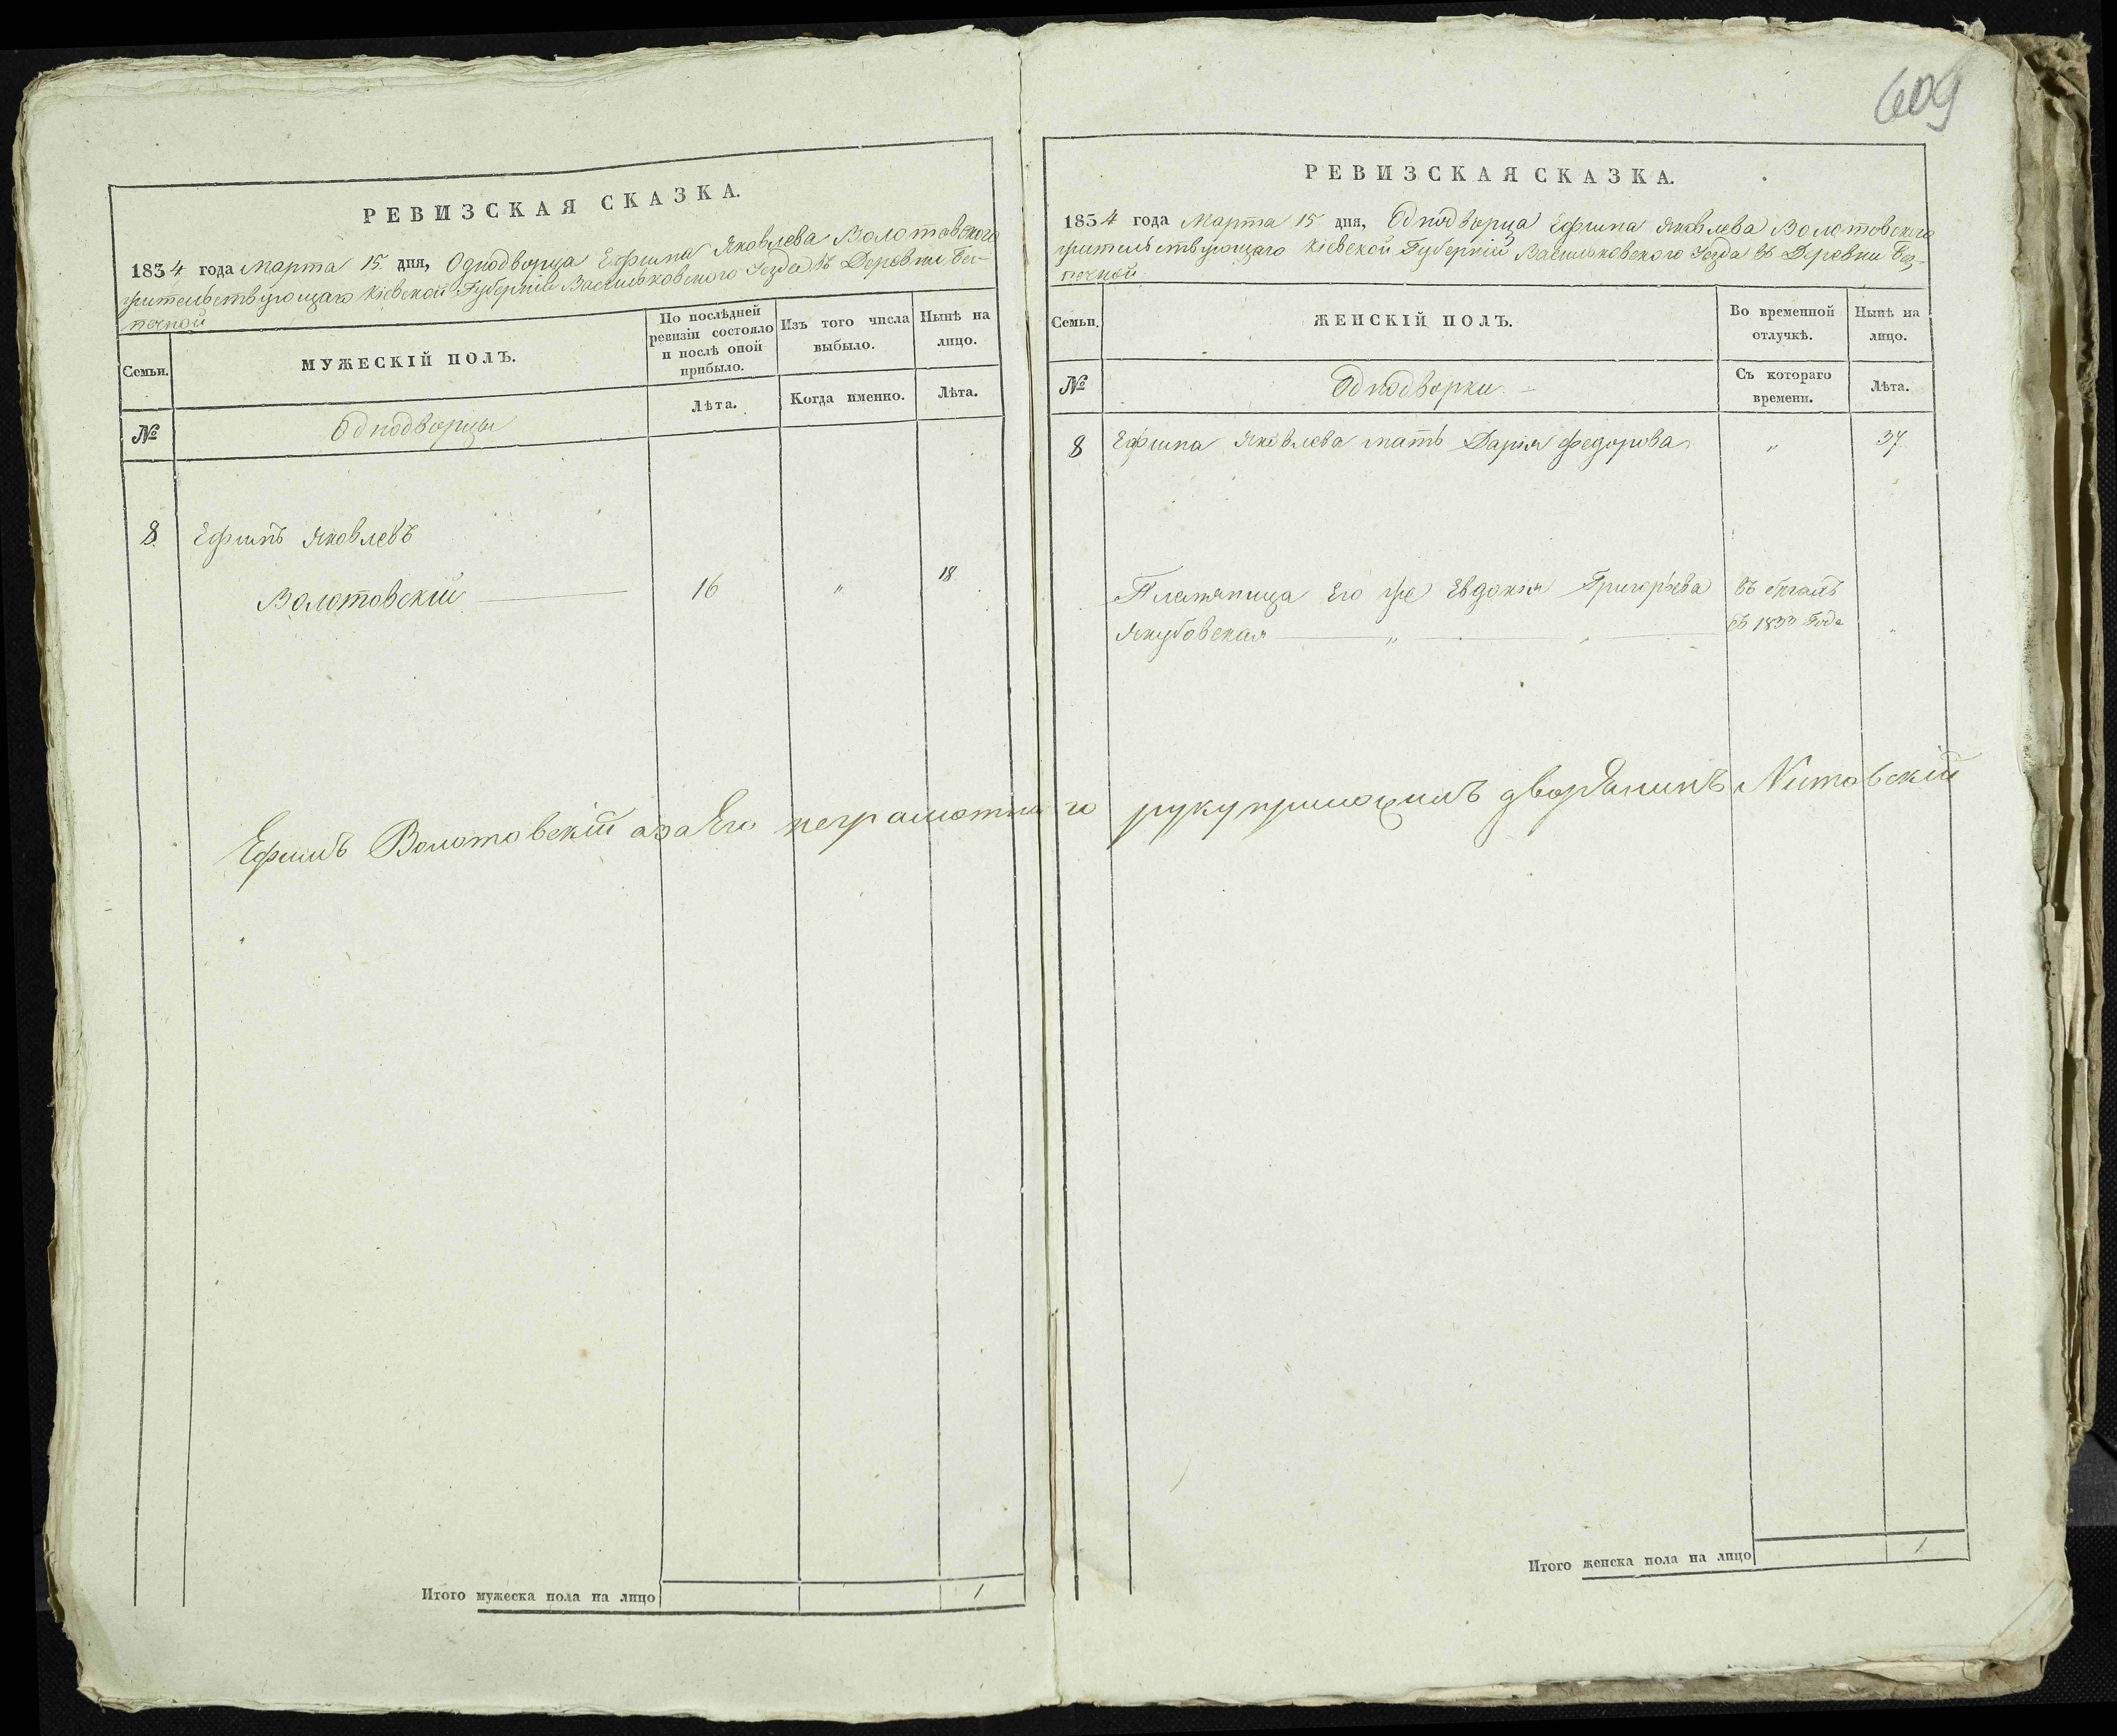 609
РЕВИЗСКАЯ СКАЗКА.
1834 года Марта 15 дня, Однодворца Ефима Яковлева Волотовского
жительствующаго Кіевской Губерніи Васильковского Уезда въ Деревни Без-
печной
Семьи.
МУЖЕСКІЙ ПОЛЪ.
По послѣдней ревизіи состояло и послѣ оной прибыло.
Изъ того числа выбыло.
Нынѣ на лицо.
№
Однодворцы
Лѣта.
Когда именно.
Лѣта.
8
Ефимъ Яковлевъ
Волотовскій
16
"
18
Ефимъ Волотовскій а за Его неграмотного руку приложилъ дворянинъ
Итого мужеска пола на лицо
1
РЕВИЗСКАЯ СКАЗКА.
1834 года Марта 15 дня, Однодворца Ефима Яковлева Волотовского
жительствующаго Кіевской Губерніи Васильковского Уезда въ Деревни Без-
печной
Семьи.
ЖЕНСКІЙ ПОЛЪ.
Во временной отлучкѣ.
Нынѣ на лицо.
№
Однодворки
Съ котораго времени.
Лѣта.
8
Ефима Яковлева мать Дарія Федорова
"
37
Племяница Его же Евдокія Григорьева
Якубовская
"
въ бегахъ
съ 1833 Года
"
Итого женска пола на лицо
1